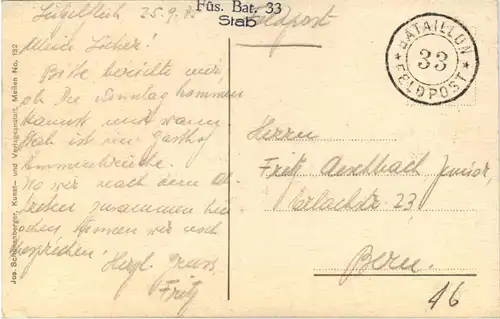 Füs. Bat. 33
Stab
25.9.
Feldpost
BATAILLON
33
FELDPOST
Mein Lieber!
Bitte berichte mir
ob Du Sonntag kommen
kannst und wann
Stab ist im Gasthof
Emmenbrücke.
Wo wir nach dem Ab-
treten zusammen hin-
gehen können wir noch
besprechen.
Herzl. Gruss
Fritz
Herrn
Fritz Aeschbach junior,
Erlachstr. 23
Bern.
46
Jos. Schönenberger, Kunst- und Verlagsanstalt, Meilen No. 132